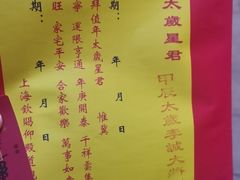 太歲星君
甲辰太歲李誠大將
期：　年　月　日
拜值年太歲星君　惟冀
寧　運限亨通　年庚開泰　千祥
旺　家宅平安　合家歡樂　萬事如
期：　年　月　日
上海欽賜仰殿道